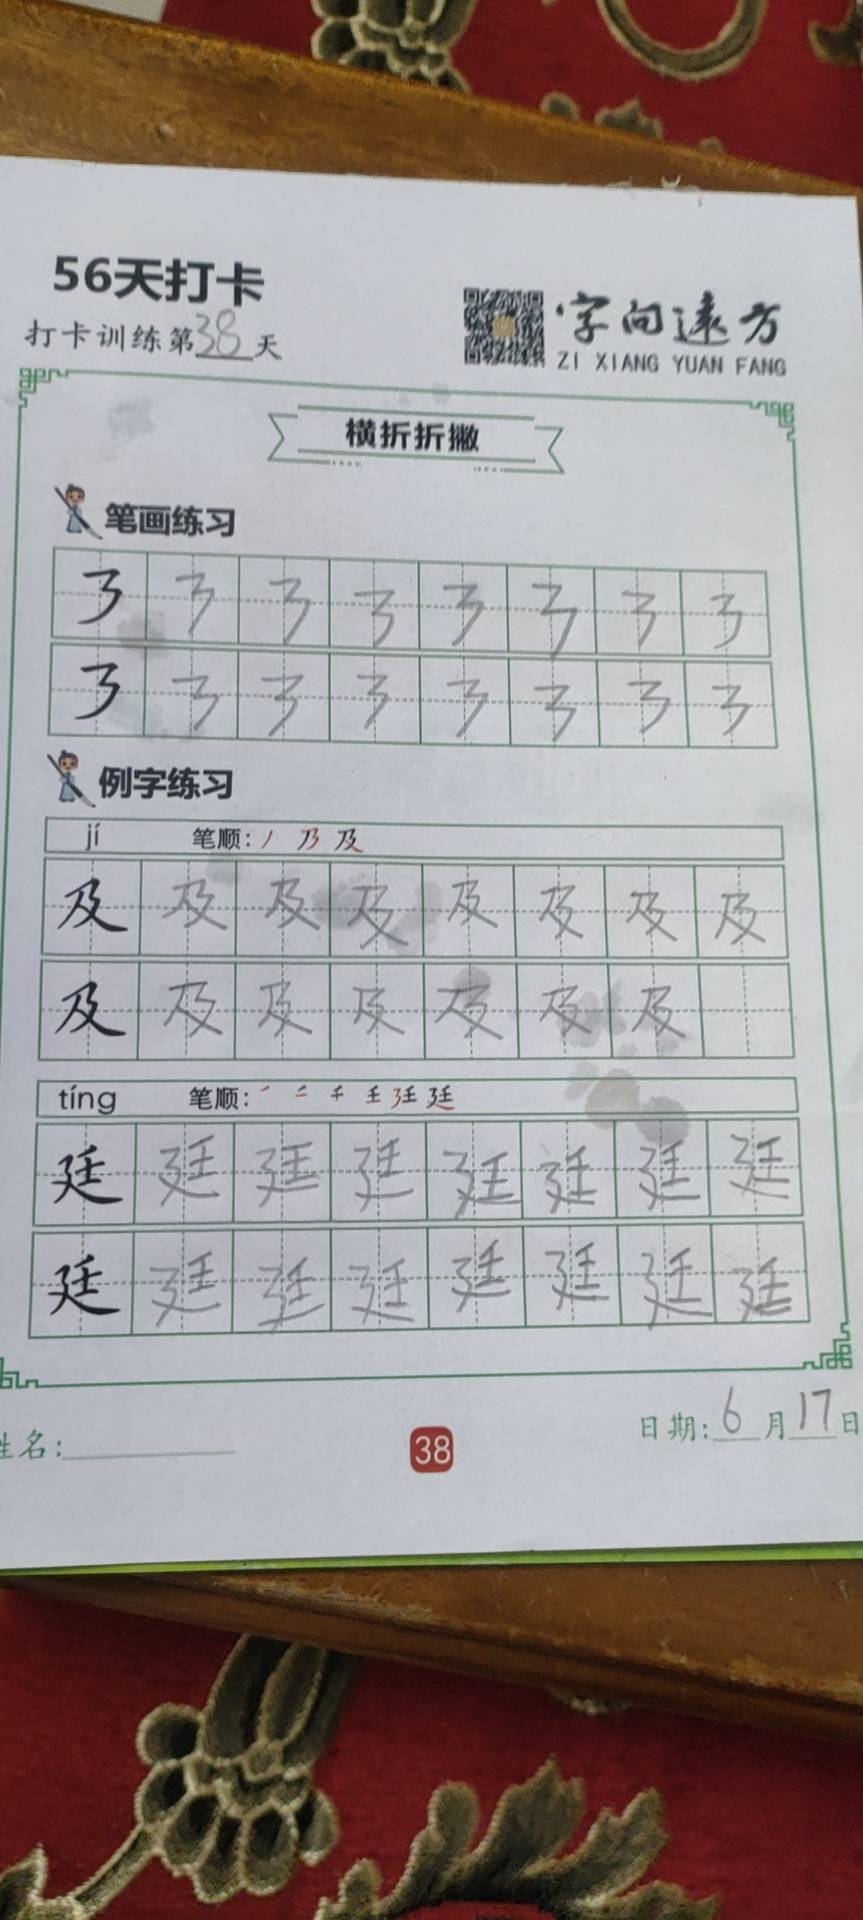 56天打卡
打卡训练第38天
字向远方
ZI XIANG YUAN FANG
横折折撇
笔画练习
㇋ ㇋ ㇋ ㇋ ㇋ ㇋ ㇋ ㇋
㇋ ㇋ ㇋ ㇋ ㇋ ㇋ ㇋ ㇋
例字练习
jí 笔顺：丿 乃 及
及 及 及 及 及 及 及 及
及 及 及 及 及 及 及
tíng 笔顺：
廷 廷 廷 廷 廷 廷 廷 廷
廷 廷 廷 廷 廷 廷 廷 廷
姓名：
38
日期：6月17日